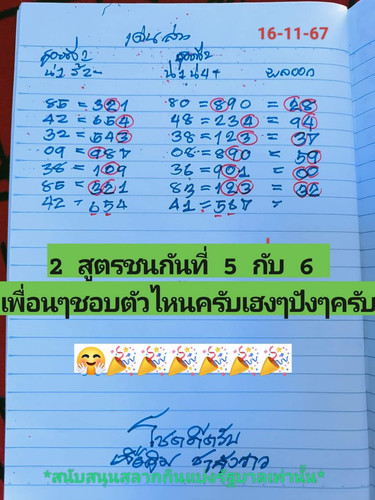 เน้นล่าง
16-11-67
สูตรที่ 2 สูตรที่ 2
น่า 1 ผลออก
85 = 321 80 = 890 = 48
42 = 654 48 = 234 = 94
32 = 543 38 = 123 = 37
09 = 987 08 = 890 = 59
38 = 109 36 = 901 = 00
85 = 321 83 = 123 = 32
42 = 654 41 = 567 =
2 สูตรชนกันที่ 5 กับ 6
เพื่อนๆชอบตัวไหนครับเฮงๆปังๆครับ
🤗🎉🎉🎉🎉🎉🎉
โชคดีครับ
*สนับสนุนสลากกินแบ่งรัฐบาลเท่านั้น*